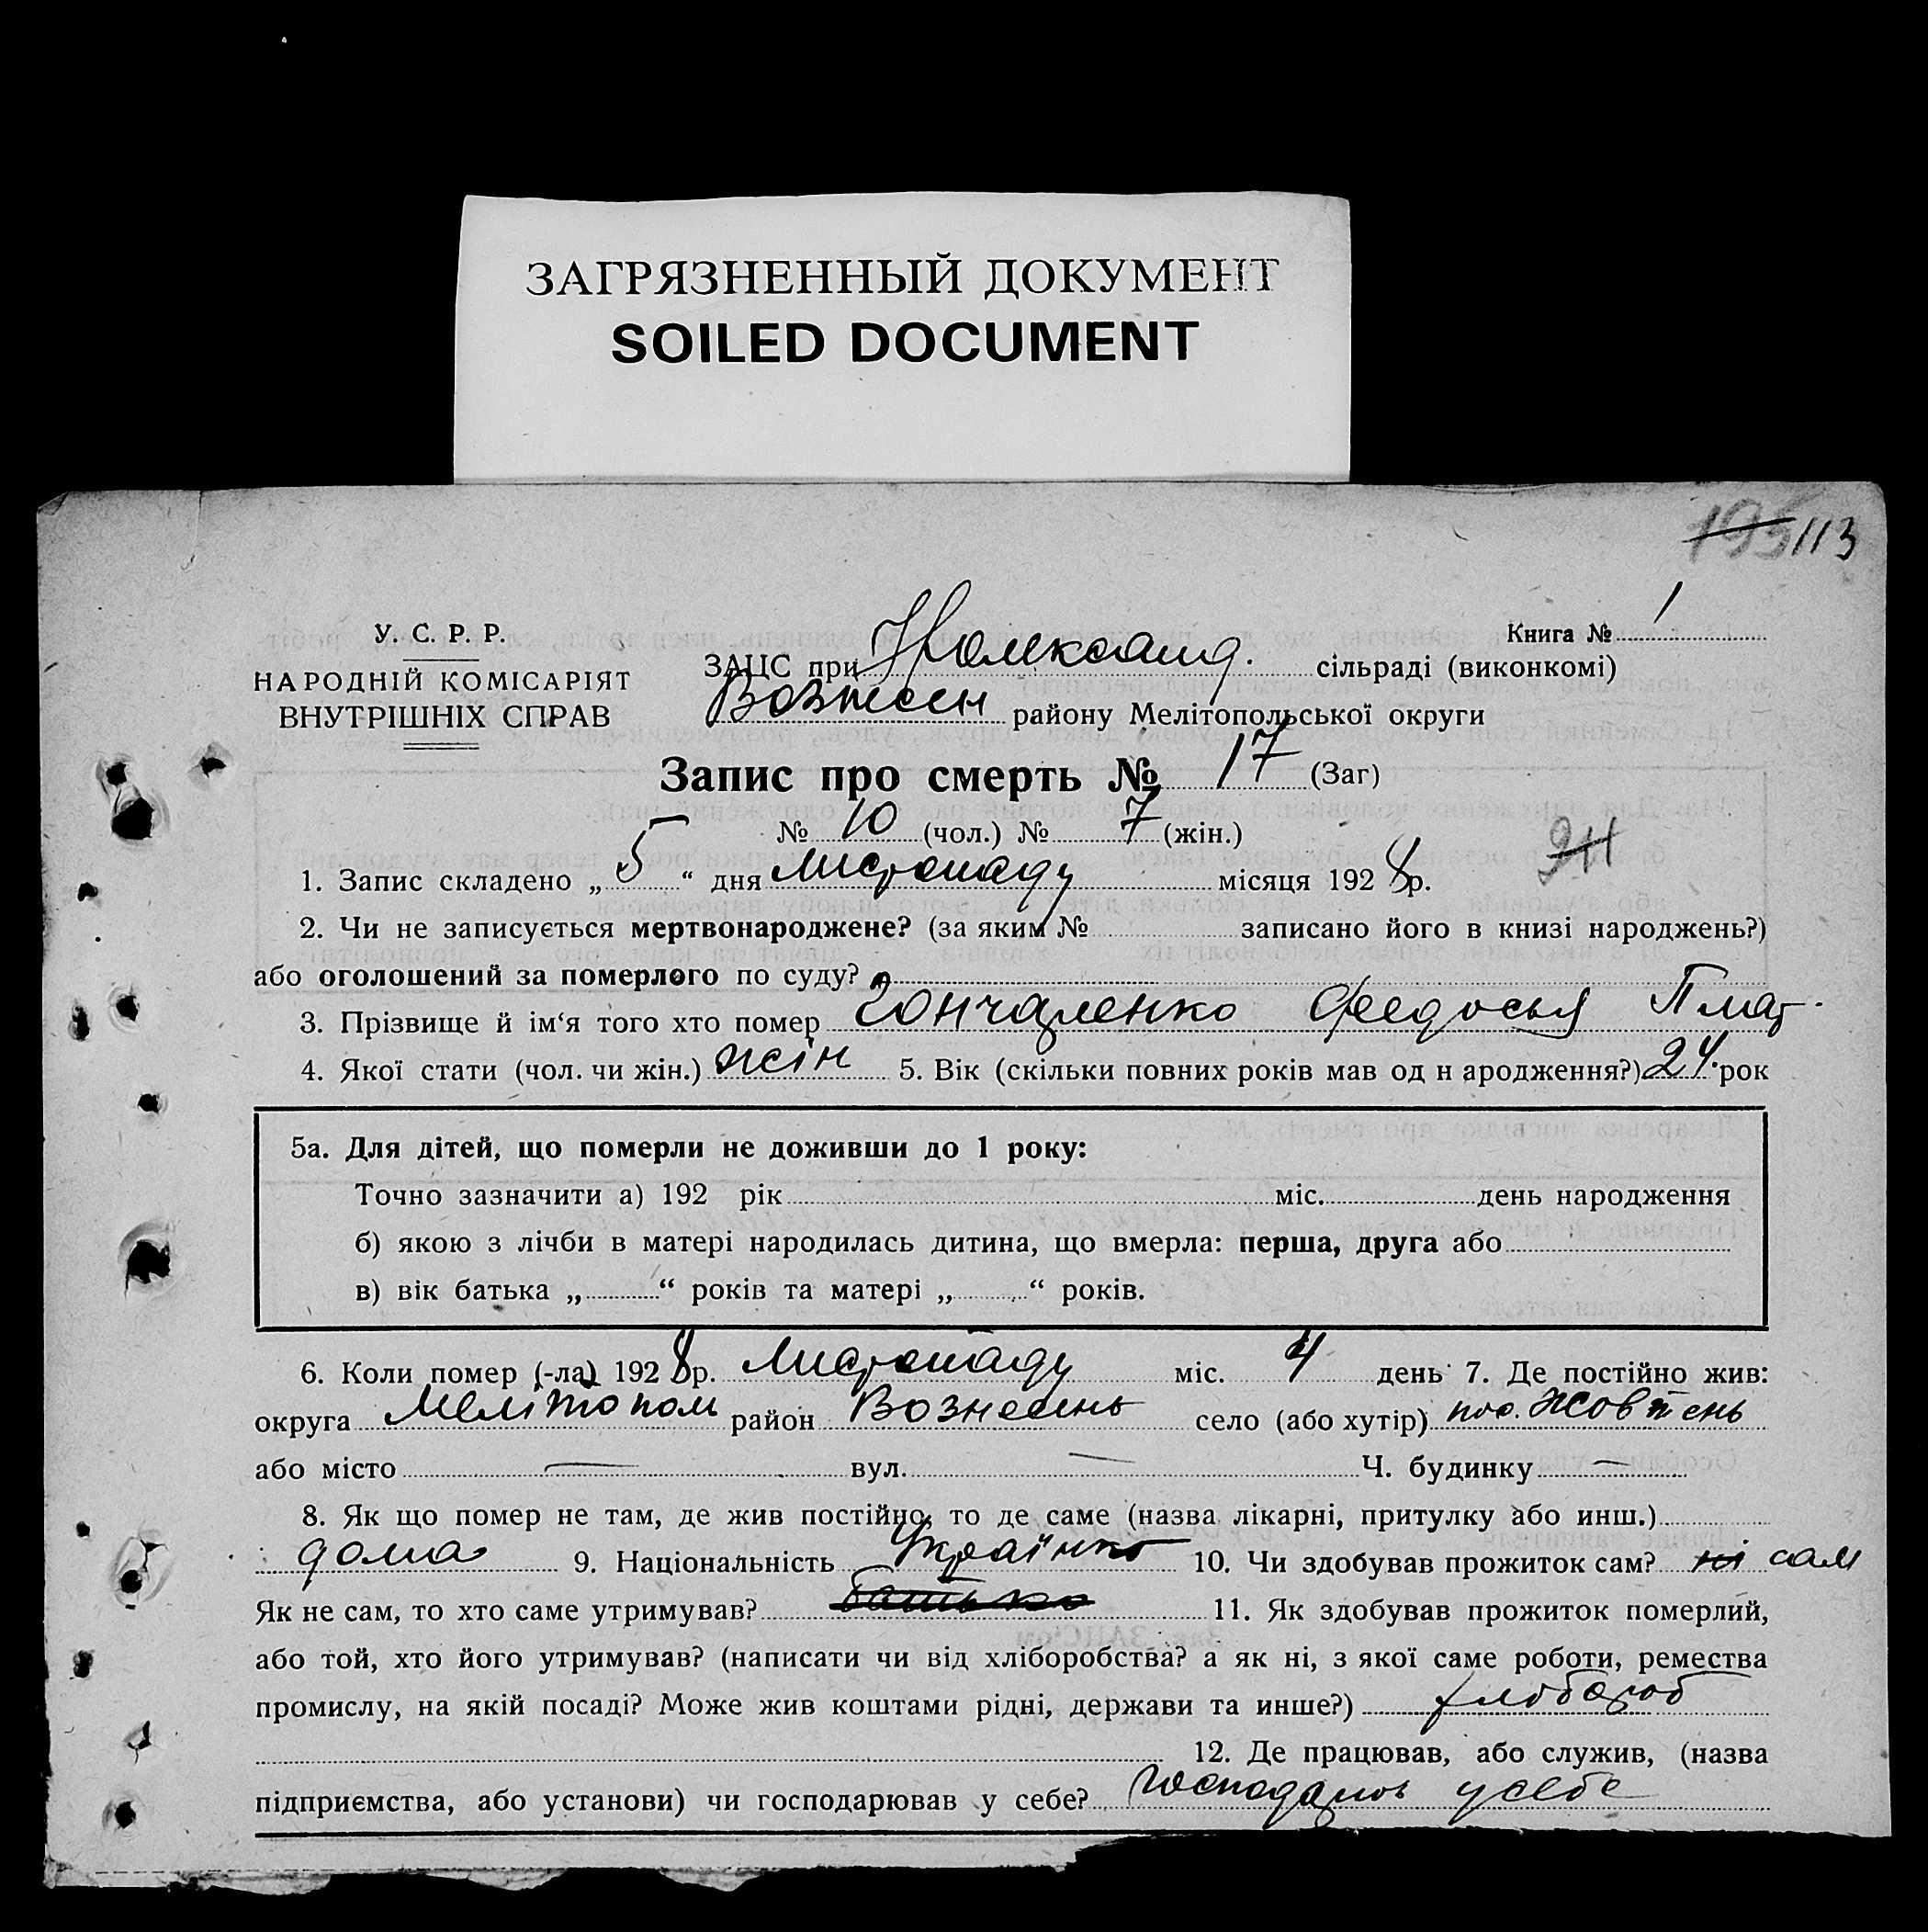 ЗАГРЯЗНЕННЫЙ ДОКУМЕНТ
SOILED DOCUMENT
195 113
У. С. Р. Р.
Книга № 1
НАРОДНІЙ КОМІСАРІЯТ
ВНУТРІШНІХ СПРАВ
ЗАЦС при сільраді (виконкомі)
Вознесен району Мелітопольської округи
Запис про смерть № 17 (Заг)
№ 10 (чол.) № 7 (жін.)
1. Запис складено „ 5 “ дня Листопаду місяця 1928 р.
2. Чи не записується мертвонароджене? (за яким № записано його в книзі народжень?)
або оголошений за померлого по суду?
3. Прізвище й ім‘я того хто помер Гончаренко Федосья Плат.
4. Якої стати (чол. чи жін.) жін 5. Вік (скільки повних років мав од н ародження?) 24 рок
5а. Для дітей, що померли не доживши до 1 року:
Точно зазначити а) 192 рік міс. день народження
б) якою з лічби в матері народилась дитина, що вмерла: перша, друга або
в) вік батька „ “ років та матері „ “ років.
6. Коли помер (-ла) 1928 р. Листопаду міс. 4 день 7. Де постійно жив:
округа Мелітопол район Вознесень село (або хутір) пос. Жовтень
або місто — вул. — Ч. будинку —
8. Як що помер не там, де жив постійно, то де саме (назва лікарні, притулку або инш.)
дома 9. Національність Українка 10. Чи здобував прожиток сам? ні сам
Як не сам, то хто саме утримував? батько 11. Як здобував прожиток померлий,
або той, хто його утримував? (написати чи від хліборобства? а як ні, з якої саме роботи, ремества
промислу, на якій посаді? Може жив коштами рідні, держави та инше?) хлібороб
12. Де працював, або служив, (назва
підприємства, або установи) чи господарював у себе? Господарюв у себе